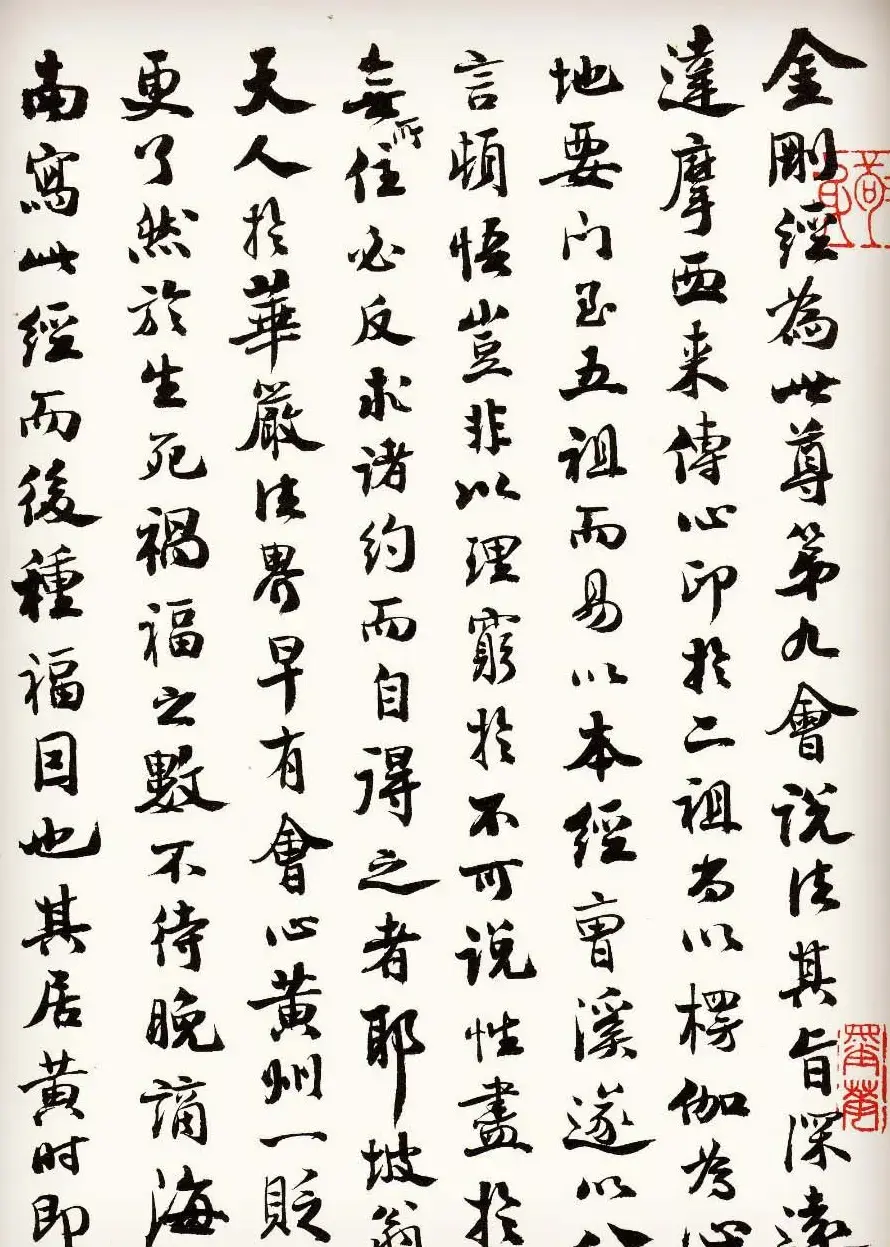 金剛經為世尊第九會説法其旨深遠
達摩西来傳心印於二祖尚以楞伽為心
地要門至五祖而易以本經曹溪遂以
言頓悟豈非以理窮於不可説性盡於
無所住必反求诸約而自得之者耶坡翁
天人於華嚴法界早有會心黄州一貶
更了然於生死禍福之數不待晚謫海
南寫此經而後種福田也其居黄时即